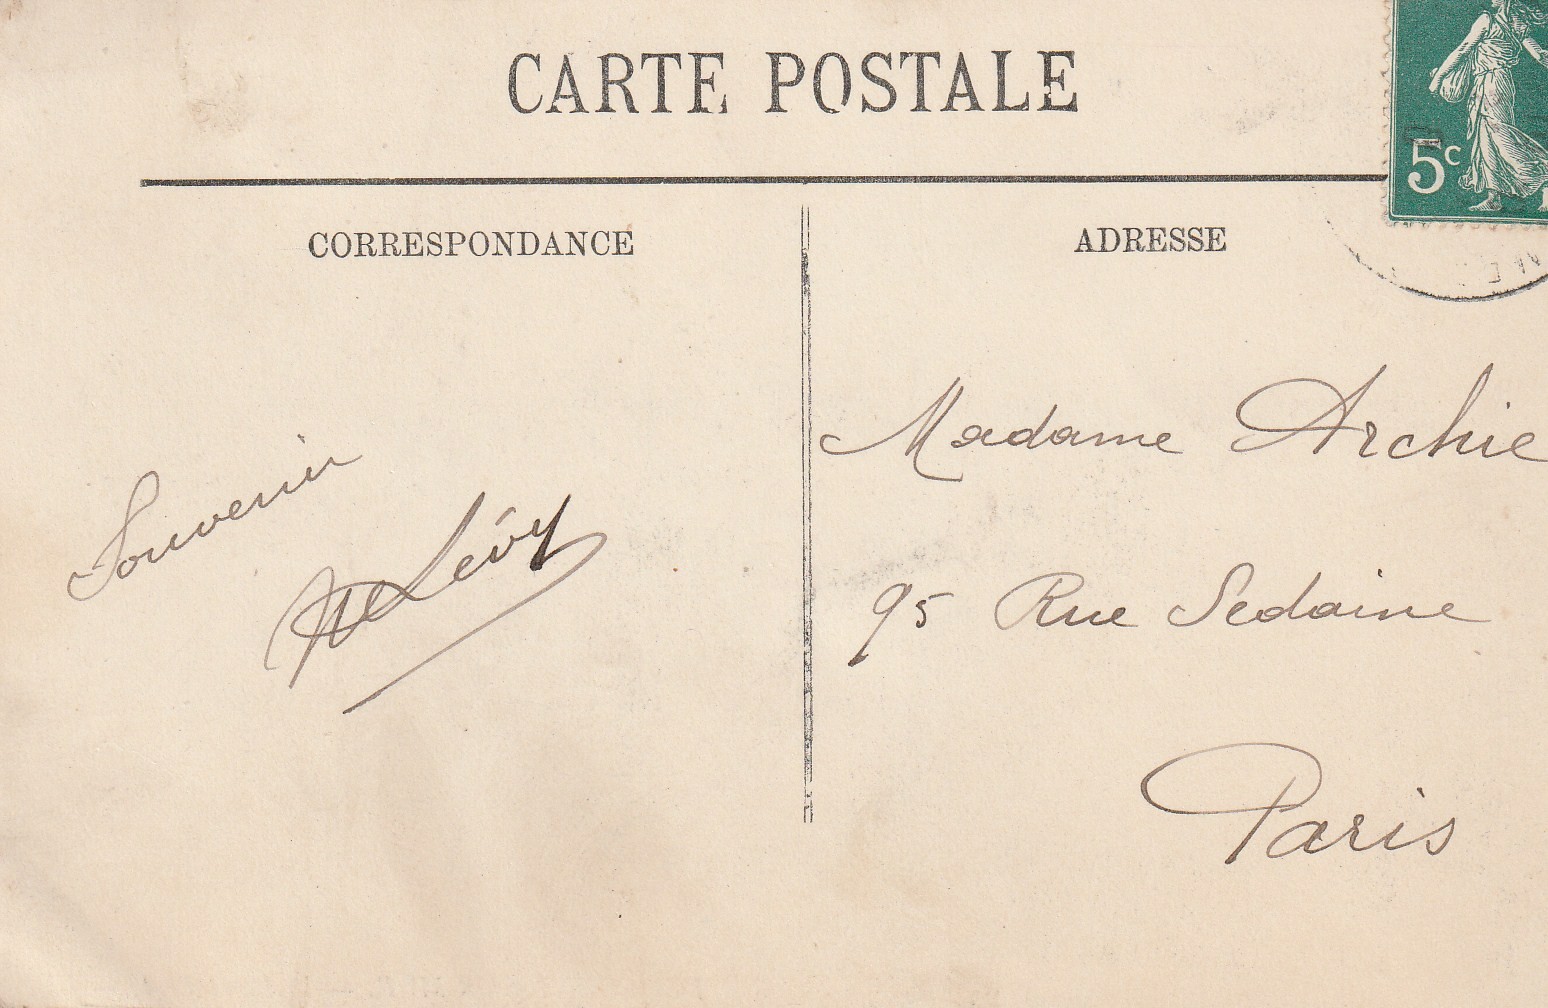 CARTE POSTALE
CORRESPONDANCE
ADRESSE
5c
Souvenir
Lévy
Madame Archie
95 Rue Sedaine
Paris